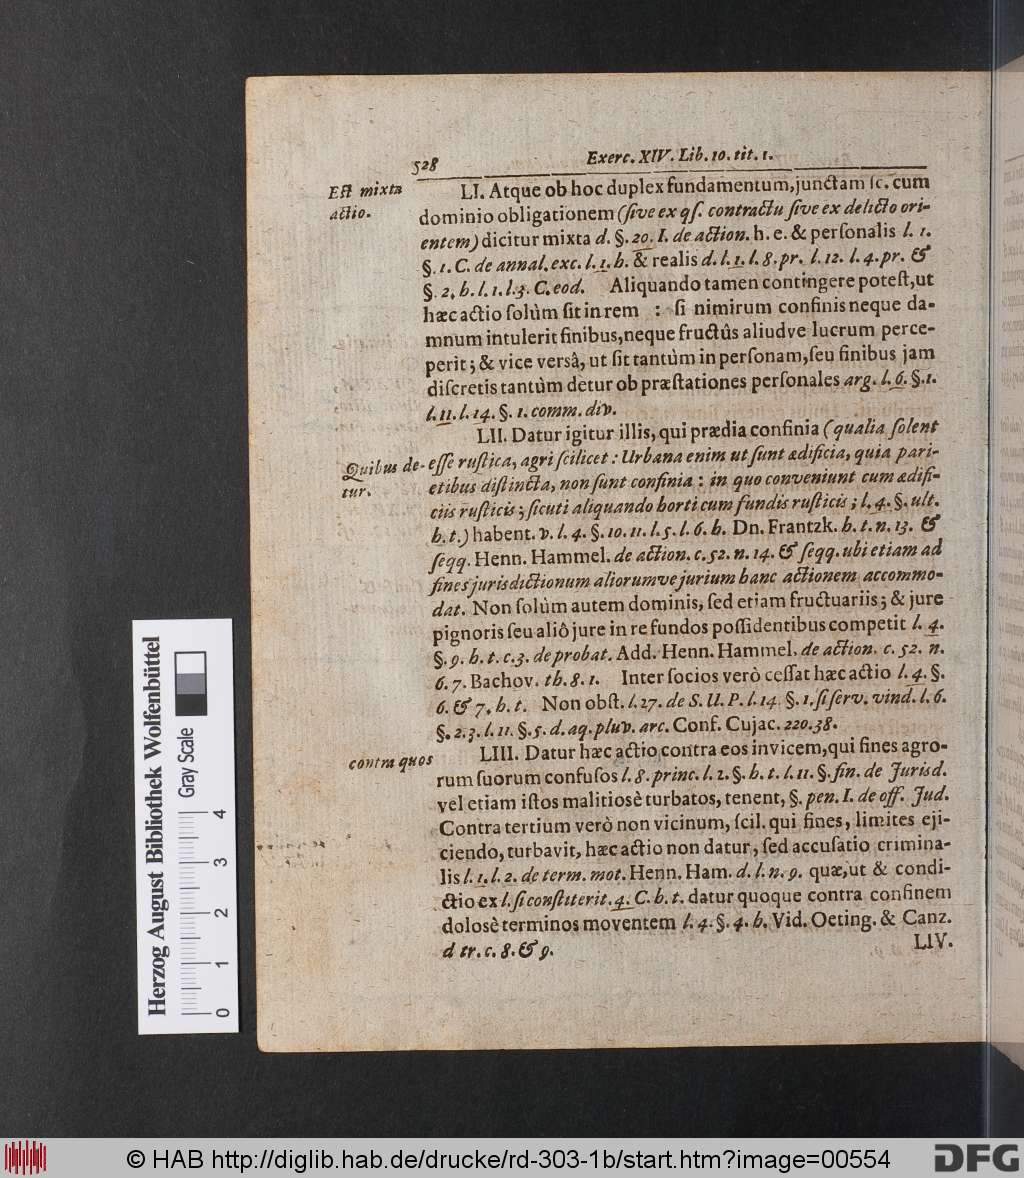 528
Exerc. XIV. Lib. 10. tit. 1.
Est mixta
actio.
LI. Atque ob hoc duplex fundamentum, junctam sc. cum
dominio obligationem (sive ex qs. contractu sive ex delicto ori-
entem) dicitur mixta d. §. 20. I. de action. h. e. & personalis l. 1.
§. 1. C. de annal. exc. l. 1. h. & realis d. l. 1. l. 8. pr. l. 12. l. 4. pr. &
§. 2. h. l. 1. l. 3. C. eod. Aliquando tamen contingere potest, ut
hæc actio solùm sit in rem : si nimirum confinis neque da-
mnum intulerit finibus, neque fructûs aliudve lucrum perce-
perit; & vice versâ, ut sit tantùm in personam, seu finibus jam
discretis tantùm detur ob præstationes personales arg. l. 6. §. 1.
l. 11. l. 14. §. 1. comm. div.
Quibus de-
tur.
LII. Datur igitur illis, qui prædia confinia (qualia solent
esse rustica, agri scilicet : Urbana enim ut sunt ædificia, quia pari-
etibus distincta, non sunt confinia : in quo conveniunt cum ædifi-
ciis rusticis; sicuti aliquando horti cum fundis rusticis; l. 4. §. ult.
h. t.) habent. v. l. 4. §. 10. 11. l. 5. l. 6. h. Dn. Frantzk. h. t. n. 13. &
seqq. Henn. Hammel. de action. c. 52. n. 14. & seqq. ubi etiam ad
fines jurisdictionum aliorumve jurium hanc actionem accommo-
dat. Non solùm autem dominis, sed etiam fructuariis; & jure
pignoris seu aliô jure in re fundos possidentibus competit l. 4.
§. 9. h. t. c. 3. de probat. Add. Henn. Hammel. de action. c. 52. n.
6. 7. Bachov. th. 8. 1. Inter socios verò cessat hæc actio l. 4. §.
6. & 7. h. t. Non obst. l. 27. de S. U. P. l. 14. §. 1. si serv. vind. l. 6.
§. 2. 3. l. 11. §. 5. d. aq. pluv. arc. Conf. Cujac. 220. 38.
contra quos
LIII. Datur hæc actio contra eos invicem, qui fines agro-
rum suorum confusos l. 8. princ. l. 2. §. h. t. l. 11. §. fin. de Jurisd.
vel etiam istos malitiosè turbatos, tenent, §. pen. I. de off. Jud.
Contra tertium verò non vicinum, scil. qui fines, limites eji-
ciendo, turbavit, hæc actio non datur, sed accusatio crimina-
lis l. 1. l. 2. de term. mot. Henn. Ham. d. l. n. 9. quæ, ut & condi-
ctio ex l. si constiterit. 4. C. h. t. datur quoque contra confinem
dolosè terminos moventem l. 4. §. 4. h. Vid. Oeting. & Canz.
d tr. c. 8. & 9.
LIV.
Herzog August Bibliothek Wolfenbüttel
Gray Scale
0 1 2 3 4
© HAB http://diglib.hab.de/drucke/rd-303-1b/start.htm?image=00554
DFG